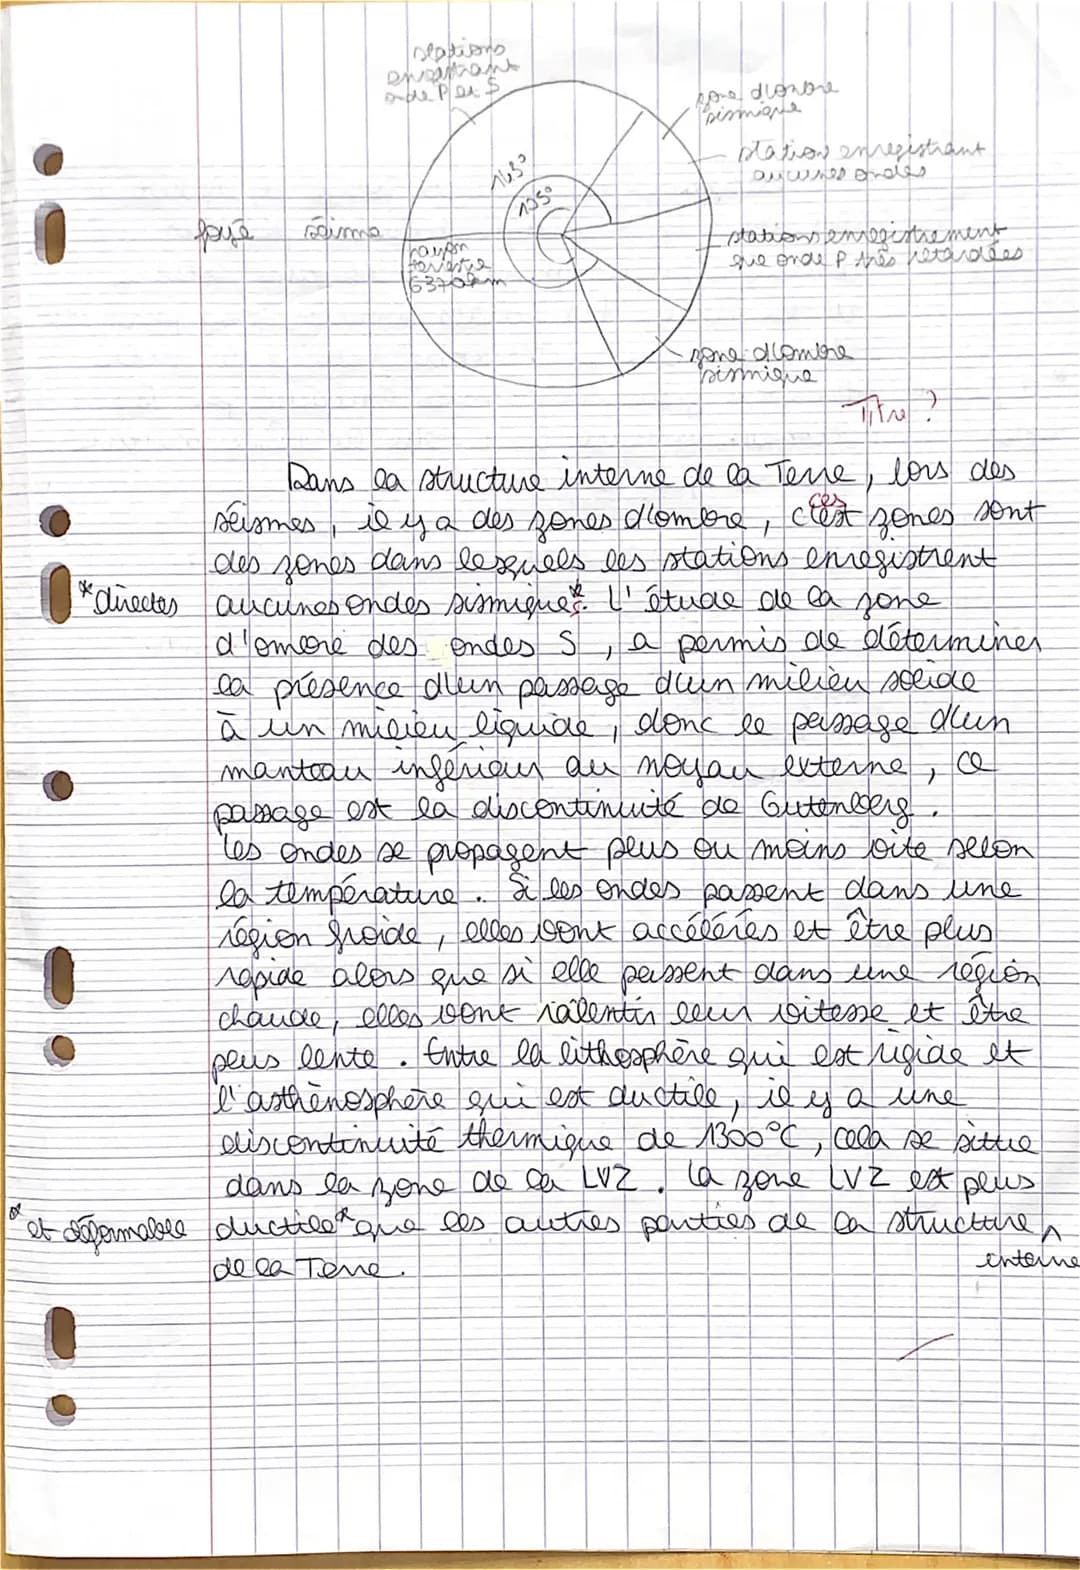 stations
enregistrant
onde P et S
zone d'ombre
sismique
station enregistrant
aucunes ondes
143°
105°
foyé séisme
rayon
terrestre
6370km
stations enregistrement
que onde P très retardées
zone d'ombre
sismique
Titre ?
Dans la structure interne de la Terre, lors des
séismes, il y a des zones d'ombre, c'est zones sont
ces
des zones dans lesquels les stations enregistrent
* directes
aucunes ondes sismiques*. L'étude de la zone
d'ombre des ondes S, a permis de déterminer
la présence d'un passage d'un milieu solide
à un milieu liquide, donc le passage d'un
manteau inférieur au noyau externe, ce
passage est la discontinuité de Gutenberg.
Les ondes se propagent plus ou moins vite selon
la température. Si les ondes passent dans une
région froide, elles vont accélérés et être plus
rapide alors que si elle passent dans une région
chaude, elles vont ralentir leur vitesse et être
plus lente. Entre la lithosphère qui est rigide et
l'asthénosphère qui est ductile, il y a une
discontinuité thermique de 1300°C, cela se situe
dans la zone de la LVZ. La zone LVZ est plus
* et déformable
ductile* que les autres parties de la structure ^
interne
de la Terre.